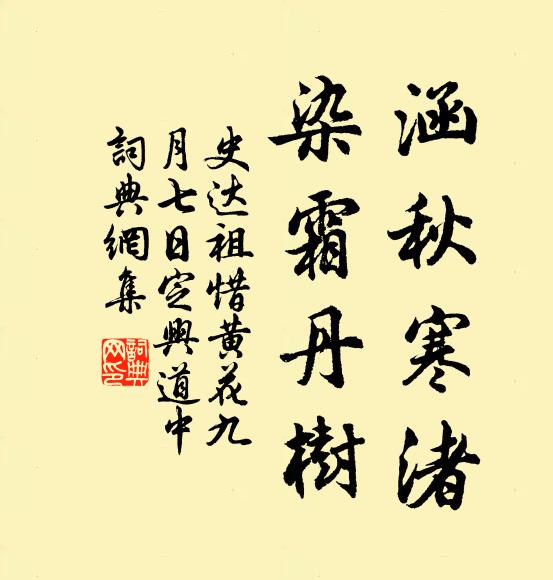 涵秋寒渚
染霜丹樹
史达祖惜黄花九
月七日定興道中
詞典網集
詞典
网印